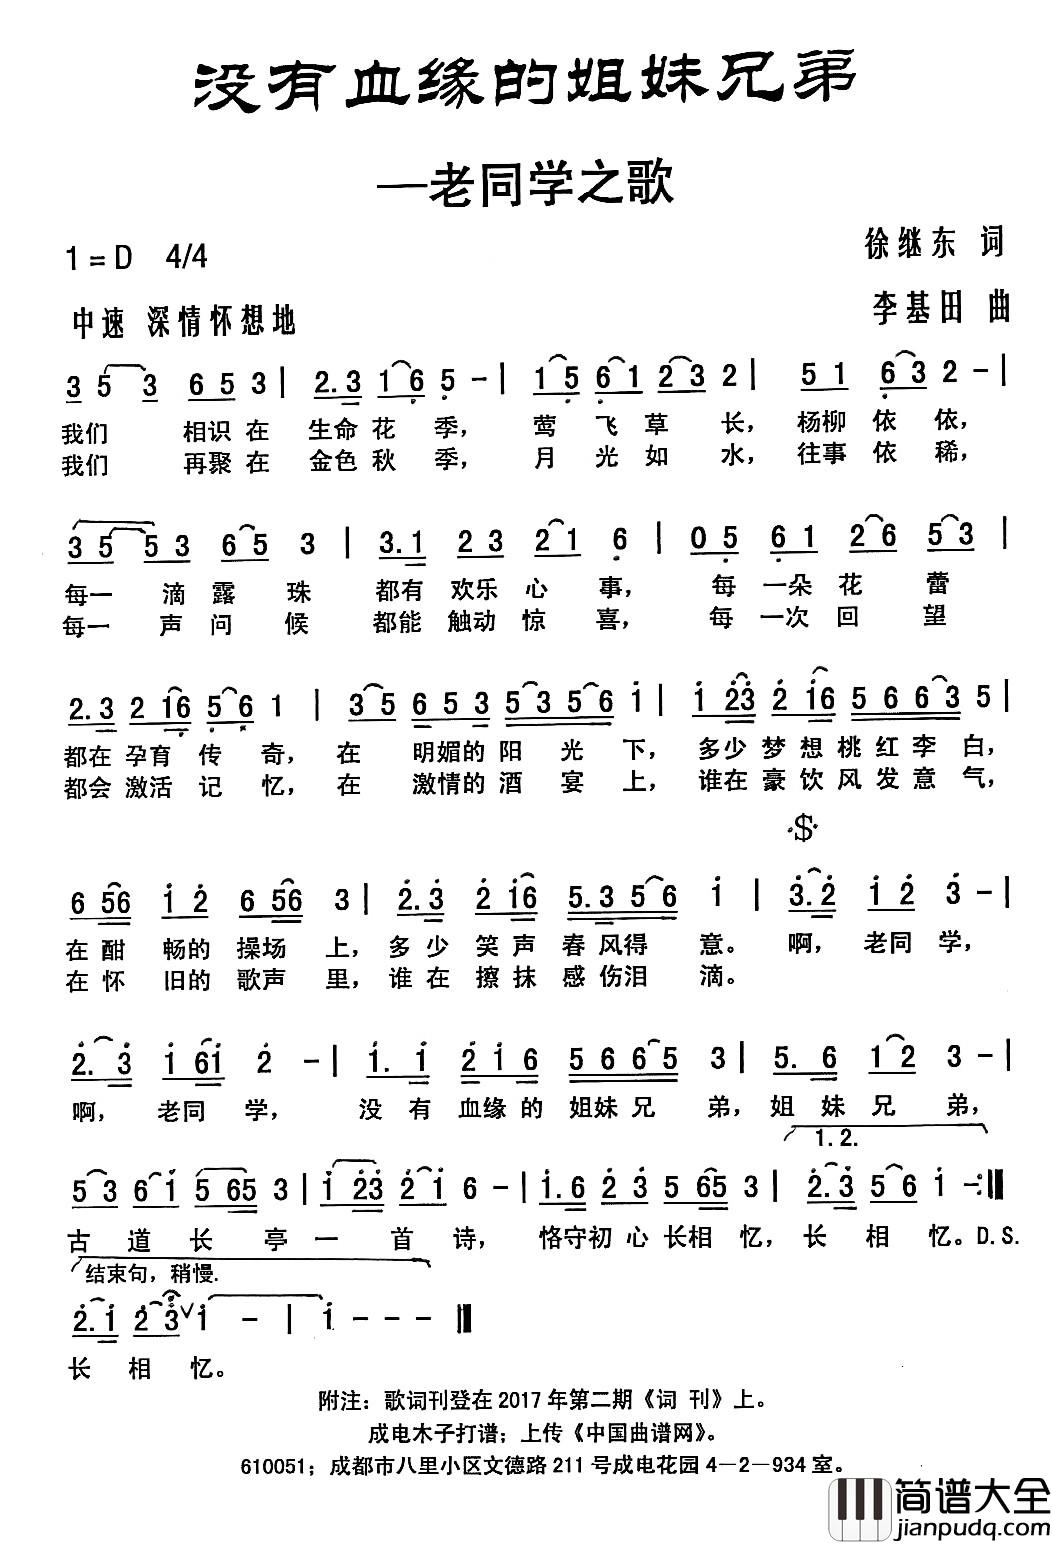 没有血缘的姐妹兄弟
—老同学之歌
1=D 4/4
徐继东 词
中速 深情怀想地
李基田 曲
3 5 3 6 5 3 | 2.3 1 6 5 - | 1 5 6 1 2 3 2 | 5 1 6 3 2 - |
我们 相识 在 生命 花 季， 莺 飞 草 长， 杨柳 依 依，
我们 再聚 在 金色 秋 季， 月 光 如 水， 往事 依 稀，
3 5 5 3 6 5 3 | 3.1 2 3 2 1 6 | 0 5 6 1 2 6 5 3 |
每一 滴 露 珠 都有 欢乐 心 事， 每 一朵 花 蕾
每一 声 问 候 都能 触动 惊 喜， 每 一次 回 望
2.3 2 16 5 6 1 | 3 5 6 5 3 5 3 5 6 i | i 23 2 i6 5 6 6 3 5 |
都在 孕育 传 奇， 在 明媚的 阳 光 下， 多少 梦 想 桃 红 李 白，
都会 激活 记 忆， 在 激情的 酒 宴 上， 谁在 豪 饮 风 发 意 气，
𝄋
6 56 i 2 6 56 3 | 2.3 2 i6 5.3 5 6 i | 3.2 i 2 3 - |
在 酣 畅的 操场 上， 多 少 笑 声 春 风得 意。 啊， 老同 学，
在 怀 旧的 歌声 里， 谁 在 擦 抹 感 伤泪 滴。
2. 3 i 6i 2 - | i. i 2 i 6 5 6 6 5 3 | 5. 6 1 2 3 - |
啊， 老同 学， 没 有 血缘 的 姐妹 兄 弟， 姐 妹 兄 弟，
1. 2.
5 3 6 i 5 65 3 | i 23 2 i 6 - | i.6 2 3 5 65 3 | 2.3 5 6 i - :||
古 道 长 亭 一 首 诗， 恪守初 心 长相 忆， 长 相 忆。D.S.
结束句，稍慢.
2.i 2 3 ∨ i - | i - - ||
长 相 忆。
附注：歌词刊登在 2017 年第二期《词 刊》上。
成电木子打谱；上传《中国曲谱网》。
610051；成都市八里小区文德路 211 号成电花园 4－2－934 室。
简谱大全
jianpudq.com